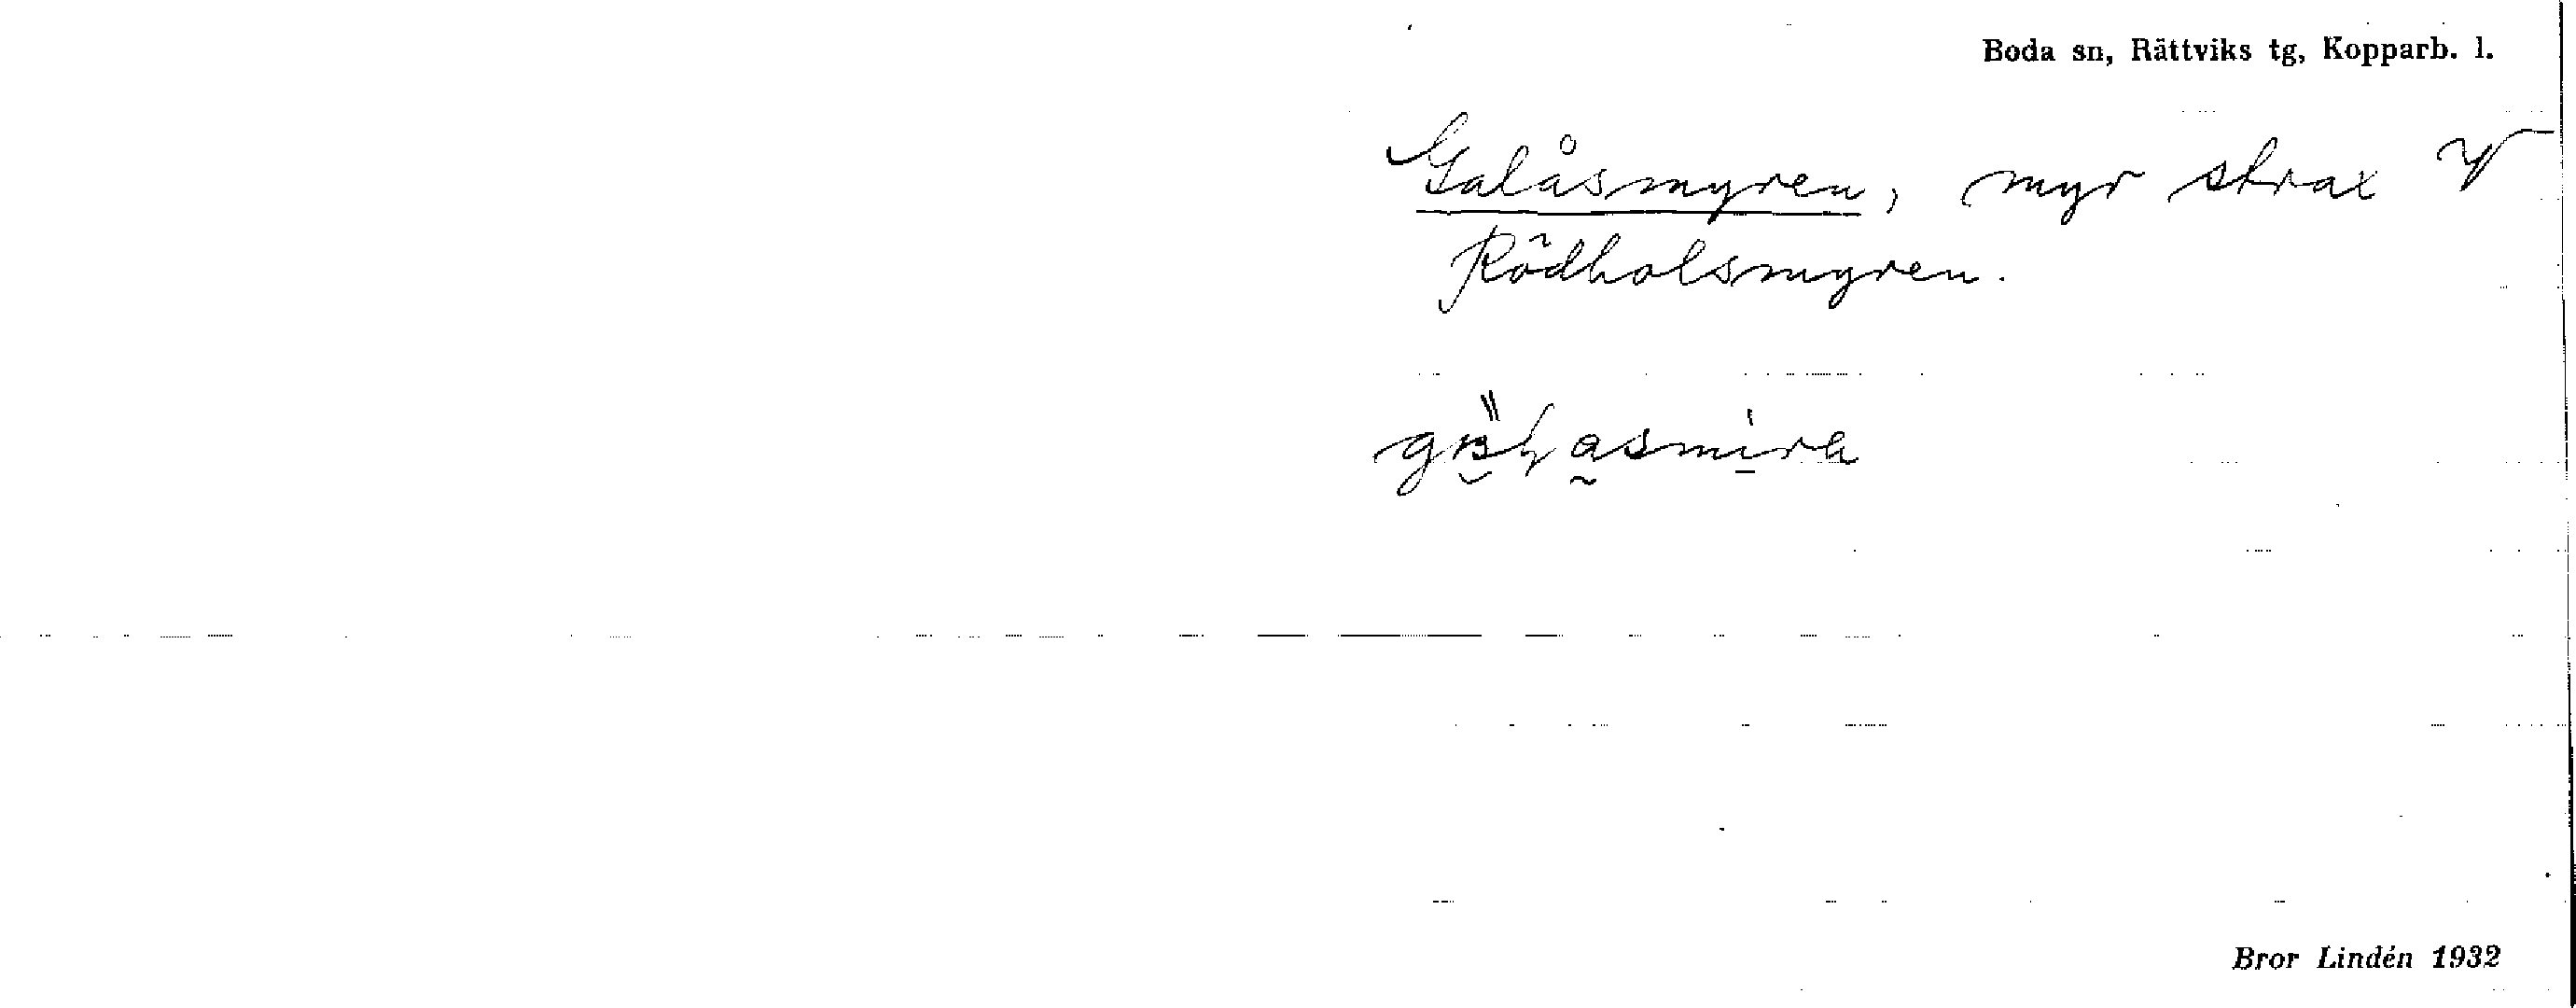 Boda sn, Rättviks tg, Kopparb. l.
Galåsmyren, myr strax V
Rödholsmyren.
Bror Lindén 1932